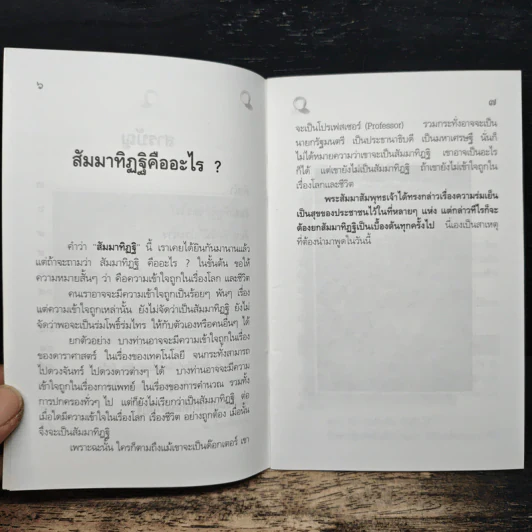 ๖
สัมมาทิฏฐิคืออะไร ?
คำว่า "สัมมาทิฏฐิ" นี้ เราเคยได้ยินกันมานานแล้ว
แต่ถ้าจะถามว่า สัมมาทิฏฐิ คืออะไร ? ในขั้นต้น ขอให้
ความหมายสั้นๆ ว่า คือความเข้าใจถูกในเรื่องโลก และชีวิต
คนเราอาจจะมีความเข้าใจถูกเป็นร้อยๆ พันๆ เรื่อง
แต่ความเข้าใจถูกเหล่านั้น ยังไม่จัดว่าเป็นสัมมาทิฏฐิ ยังไม่
จัดว่าพอจะเป็นร่มโพธิ์ร่มไทร ให้กับตัวเองหรือคนอื่นๆ ได้
ยกตัวอย่าง บางท่านอาจจะมีความเข้าใจถูกในเรื่อง
ของดาราศาสตร์ ในเรื่องของเทคโนโลยี จนกระทั่งสามารถ
ไปดวงจันทร์ ไปดวงดาวต่างๆ ได้ บางท่านอาจจะมีความ
เข้าใจถูกในเรื่องการแพทย์ ในเรื่องของการคำนวณ รวมทั้ง
การปกครองทั่วๆ ไป แต่ก็ยังไม่เรียกว่าเป็นสัมมาทิฏฐิ ต่อ
เมื่อใดมีความเข้าใจในเรื่องโลก เรื่องชีวิต อย่างถูกต้อง เมื่อนั้น
จึงจะเป็นสัมมาทิฏฐิ
เพราะฉะนั้น ใครก็ตามถึงแม้เขาจะเป็นด๊อกเตอร์ เขา
๗
จะเป็นโปรเฟสเซอร์ (Professor) รวมกระทั่งอาจจะเป็น
นายกรัฐมนตรี เป็นประธานาธิบดี เป็นมหาเศรษฐี นั่นก็
ไม่ได้หมายความว่าเขาจะเป็นสัมมาทิฏฐิ เขาอาจเป็นอะไร
ก็ได้ แต่เขายังไม่เป็นสัมมาทิฏฐิ ถ้าเขายังไม่เข้าใจถูกใน
เรื่องโลกและชีวิต
พระสัมมาสัมพุทธเจ้าได้ทรงกล่าวเรื่องความร่มเย็น
เป็นสุขของประชาชนไว้ในที่หลายๆ แห่ง แต่กล่าวทีไรก็จะ
ต้องยกสัมมาทิฏฐิเป็นเบื้องต้นทุกครั้งไป นี่เองเป็นสาเหตุ
ที่ต้องนำมาพูดในวันนี้